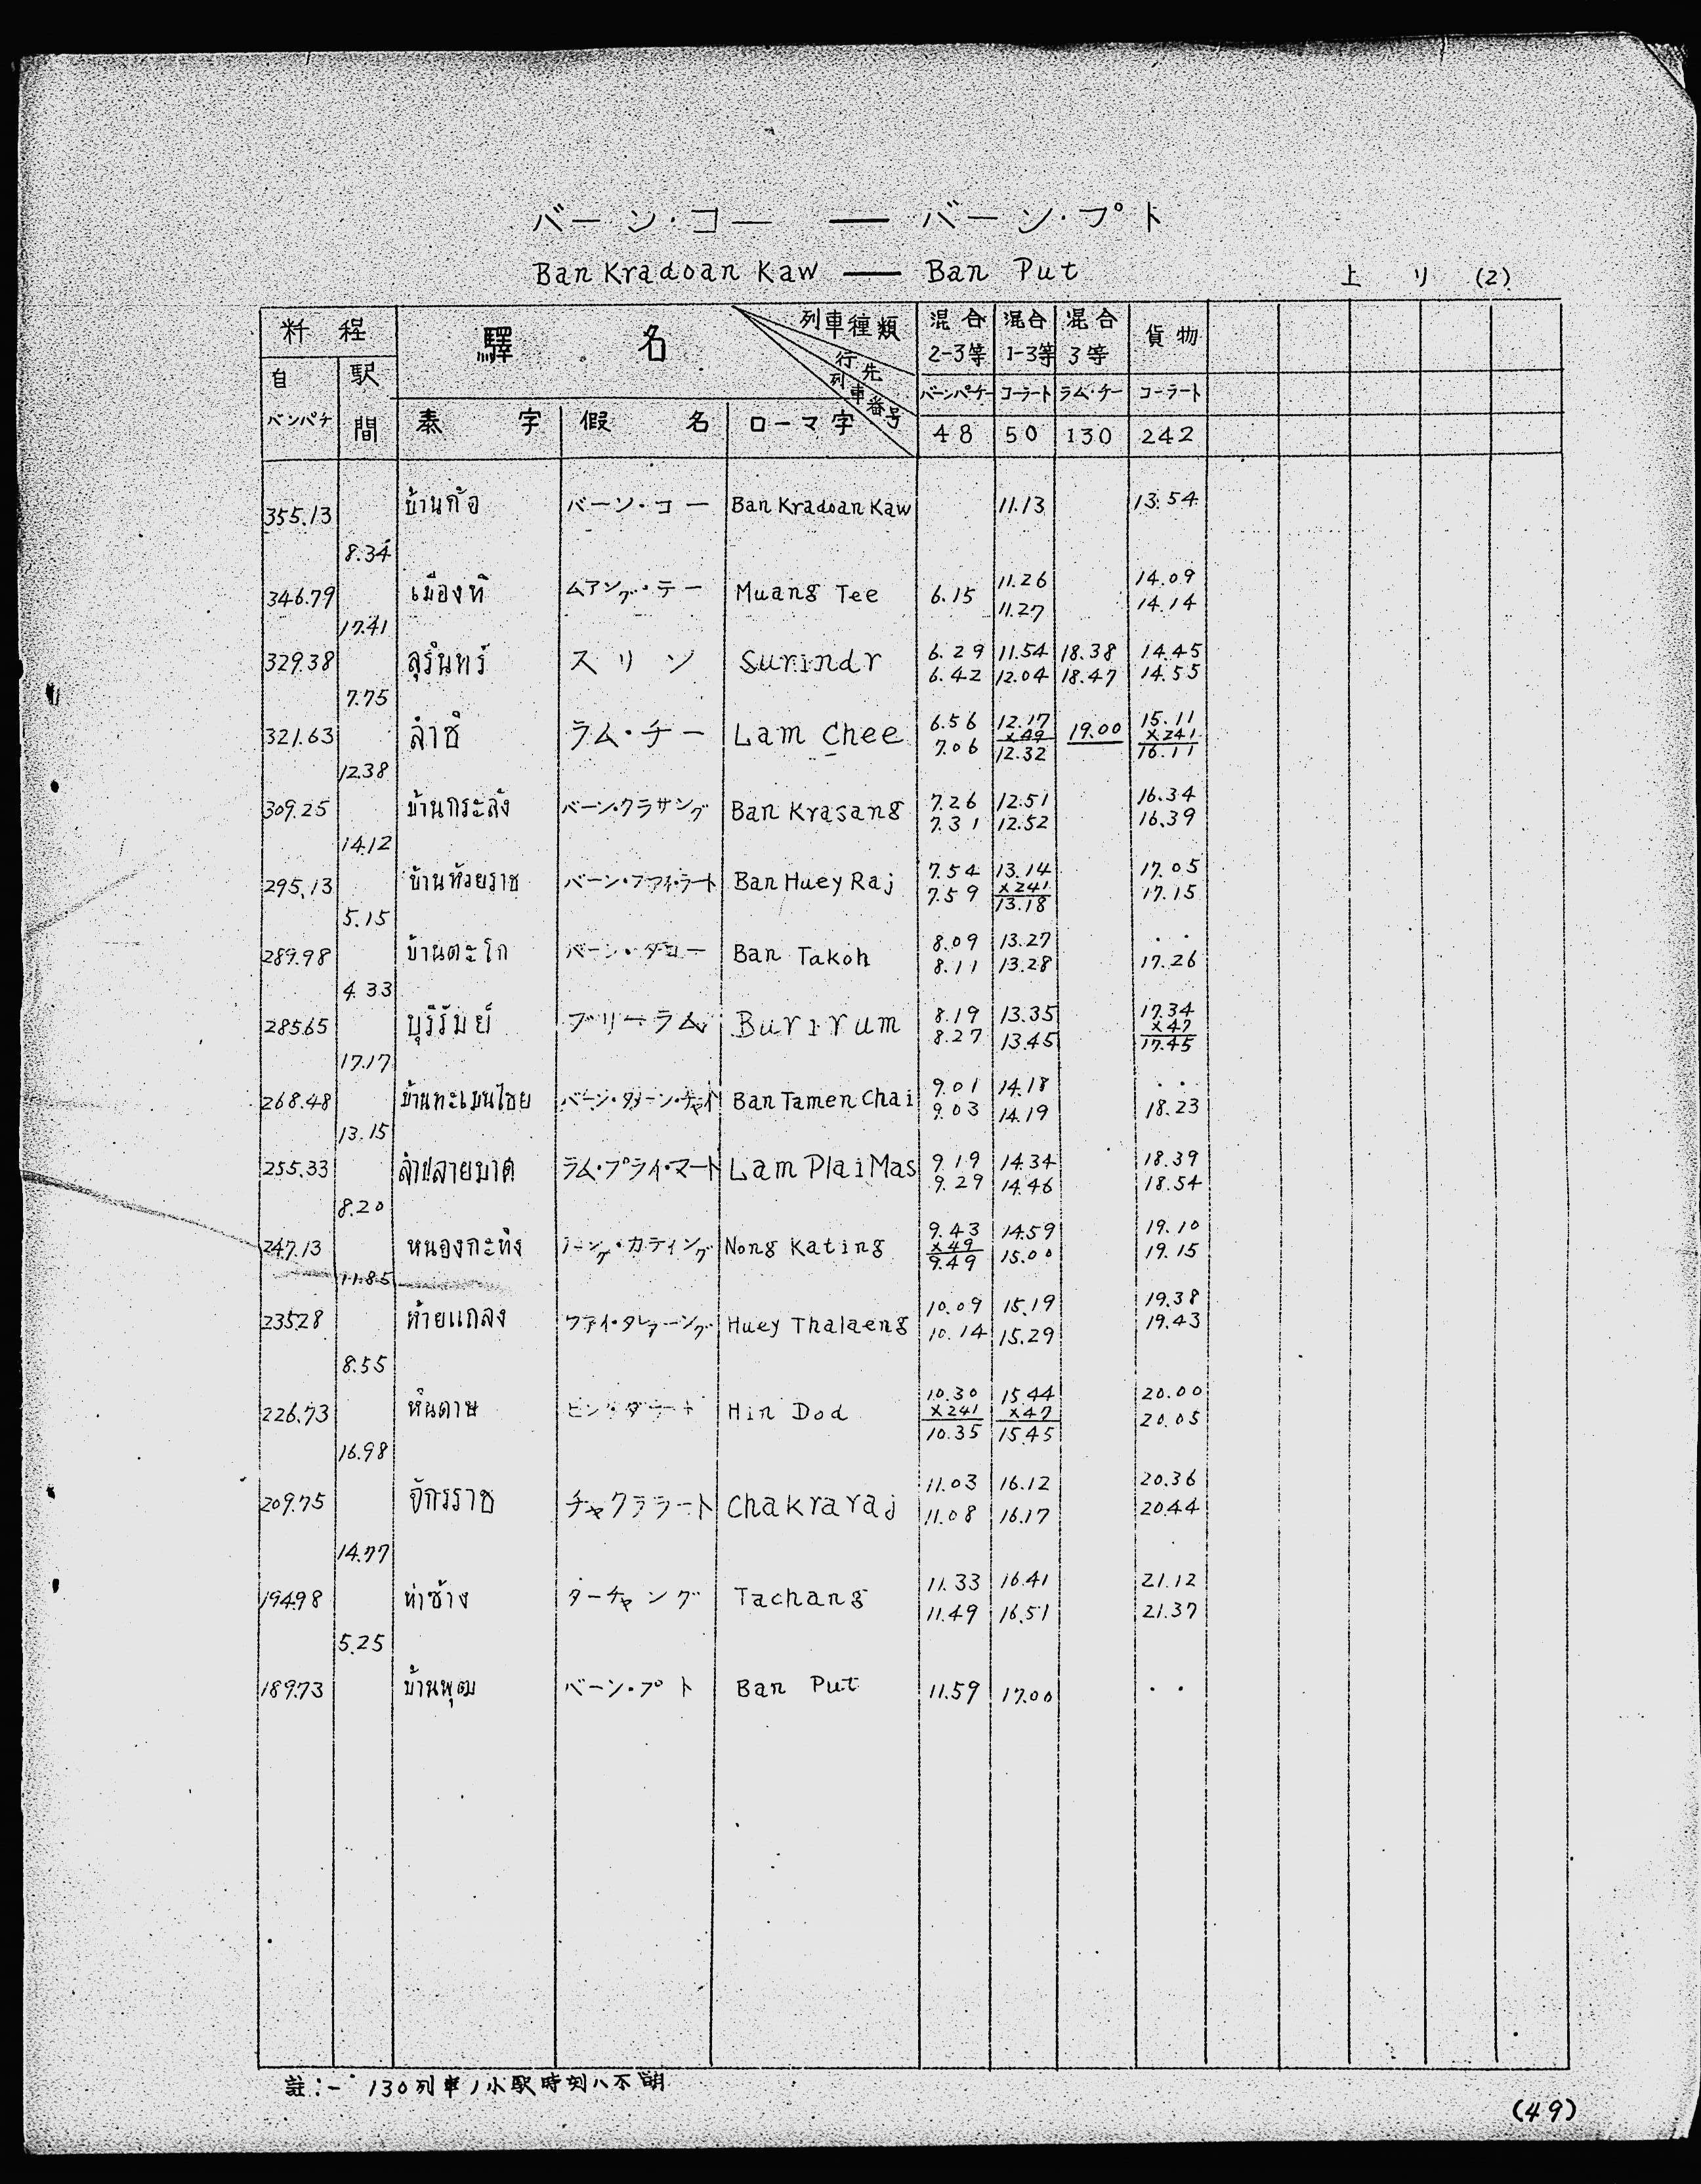 バーン・コー — バーン・プト
Ban Kradoan Kaw — Ban Put
上 リ (2)
粁 程 驛 名 列車種類 混合 混合 混合 貨物
2-3等 1-3等 3等
自 駅 行先 バーンパチー コーラート ラム・チー コーラート
バンパチ 間 泰 字 假 名 ローマ字 列車番号 48 50 130 242
355.13 บ้านกัอ バーン・コー Ban Kradoan Kaw 11.13 13.54
8.34
346.79 เมืองที ムアング・テー Muang Tee 6.15 11.26 14.09
11.27 14.14
17.41
329.38 สุรินทร์ スリン Surindr 6.29 11.54 18.38 14.45
6.42 12.04 18.47 14.55
7.75
321.63 ลำชี ラム・チー Lam Chee 6.56 12.17 19.00 15.11
×49 ×241
7.06 12.32 16.11
12.38
309.25 บ้านกระสัง バーン・クラサング Ban Krasang 7.26 12.51 16.34
7.31 12.52 16.39
14.12
295.13 บ้านห้วยราช バーン・フアイ・ラート Ban Huey Raj 7.54 13.14 17.05
×241
7.59 13.18 17.15
5.15
289.98 บ้านตะโก バーン・タコー Ban Takoh 8.09 13.27 . .
8.11 13.28 17.26
4.33
285.65 บุรีรัมย์ ブリーラム Burirum 8.19 13.35 17.34
×47
8.27 13.45 17.45
17.17
268.48 บ้านทะเมนไชย バーン・タメーン・チャイ Ban Tamen Chai 9.01 14.18 . .
9.03 14.19 18.23
13.15
255.33 ลำปลายมาศ ラム・プライ・マート Lam Plai Mas 9.19 14.34 18.39
9.29 14.46 18.54
8.20
247.13 หนองกะทิง ノーング・カティング Nong Kating 9.43 14.59 19.10
×49
9.49 15.00 19.15
11.85
235.28 ห้วยแถลง フアイ・タレァーング Huey Thalaeng 10.09 15.19 19.38
10.14 15.29 19.43
8.55
226.73 หินดาษ ヒン・ダート Hin Dod 10.30 15.44 20.00
×241 ×47
10.35 15.45 20.05
16.98
209.75 จักรราช チャクララート Chakraraj 11.03 16.12 20.36
11.08 16.17 20.44
14.77
194.98 ท่าช้าง ターチャング Tachang 11.33 16.41 21.12
11.49 16.51 21.37
5.25
189.73 บ้านพุฒ バーン・プト Ban Put 11.59 17.00 . .
註:一 130列車ノ小駅時刻ハ不明
(49)